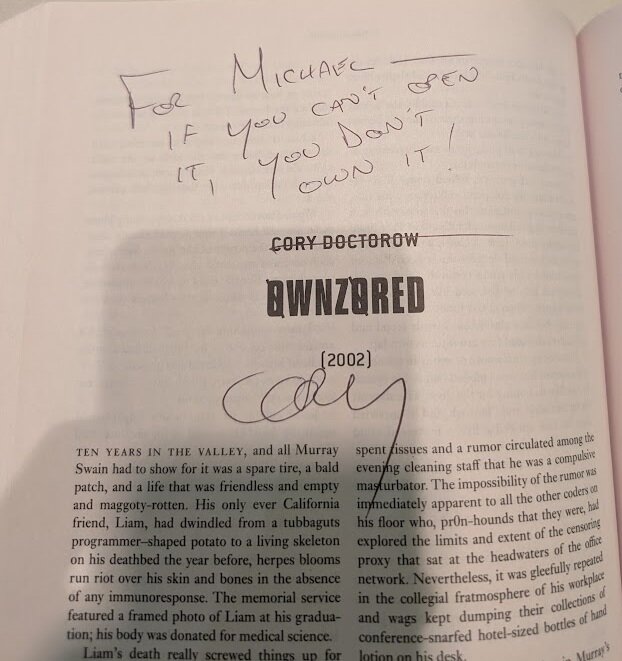 FOR MICHAEL —
IF YOU CAN'T OPEN
IT, YOU DON'T
OWN IT!
CORY DOCTOROW
0WNZ0RED
(2002)
Cory
TEN YEARS IN THE VALLEY, and all Murray
Swain had to show for it was a spare tire, a bald
patch, and a life that was friendless and empty
and maggoty-rotten. His only ever California
friend, Liam, had dwindled from a tubbaguts
programmer–shaped potato to a living skeleton
on his deathbed the year before, herpes blooms
run riot over his skin and bones in the absence
of any immunoresponse. The memorial service
featured a framed photo of Liam at his gradua-
tion; his body was donated for medical science.
Liam's death really screwed things up for
spent tissues and a rumor circulated among the
evening cleaning staff that he was a compulsive
masturbator. The impossibility of the rumor was
immediately apparent to all the other coders on
his floor who, pr0n-hounds that they were, had
explored the limits and extent of the censoring
proxy that sat at the headwaters of the office
network. Nevertheless, it was gleefully repeated
in the collegial fratmosphere of his workplace
and wags kept dumping their collections of
conference-snarfed hotel-sized bottles of hand
lotion on his desk.
Murray's